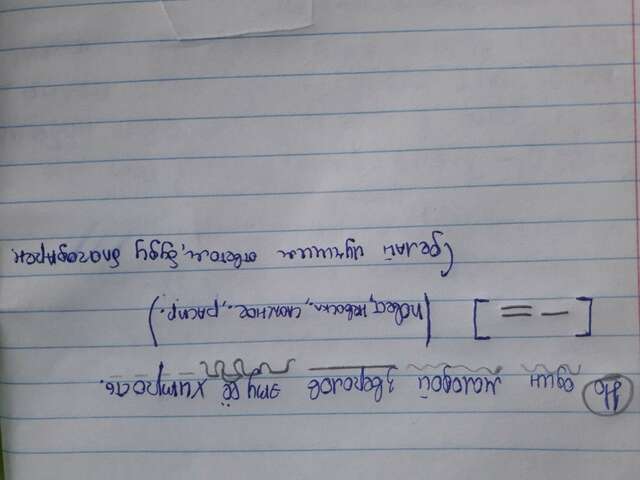 Но один молодой зверолов эту её хитрость.
[— =] (повест, невоскл., сложное., распр.)
Сделай лучшим ответом, буду благодарен